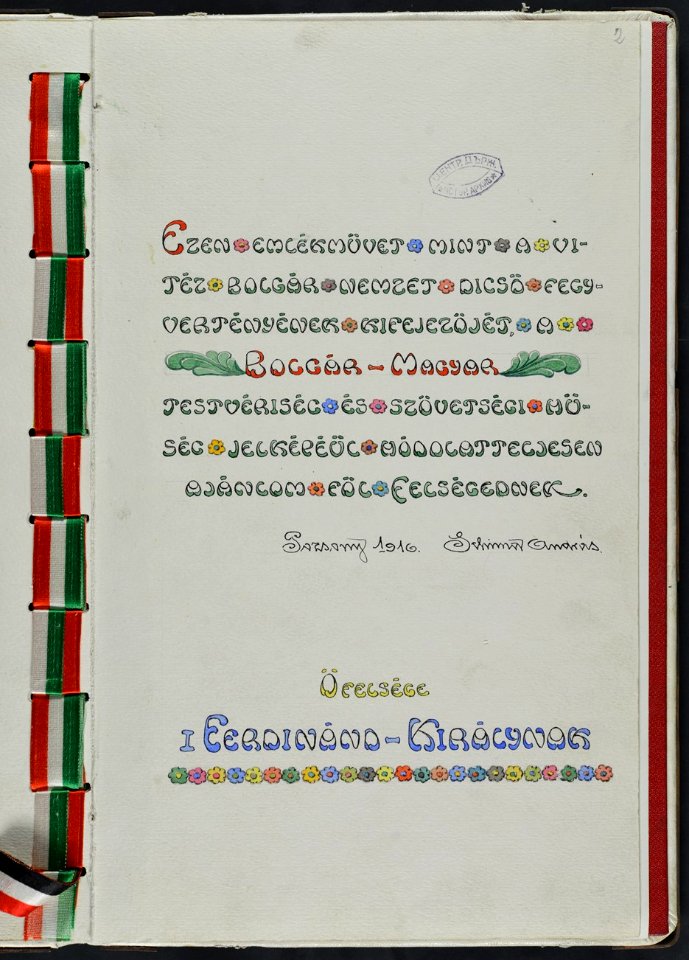 2
ЦЕНТР. ДЪРЖ.
EZEN EMLÉKMŰVET MINT A VI-
TÉZ BOLGÁR NEMZET DICSŐ FEGY-
VERTÉNYÉNEK KIFEJEZŐJÉT, A
BOLGÁR-MAGYAR
TESTVÉRISÉG ÉS SZÖVETSÉGI HŰ-
SÉG JELKÉPÉÜL HÓDOLATTELJESEN
AJÁNLOM FÖL FELSÉGEDNEK.
Pozsony 1916. András.
ŐFELSÉGE
I FERDINÁND-KIRÁLYNAK